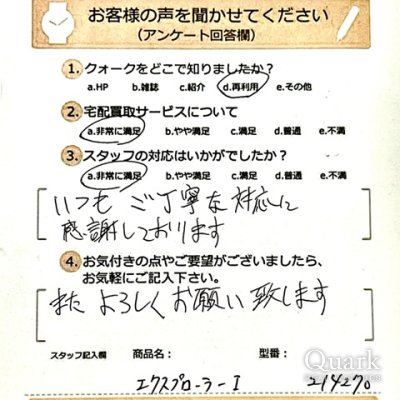 お客様の声を聞かせてください
(アンケート回答欄)
1. クォークをどこで知りましたか?
a.HP b.雑誌 c.紹介 d.再利用 e.その他
2. 宅配買取サービスについて
a.非常に満足 b.やや満足 c.満足 d.普通 e.不満
3. スタッフの対応はいかがでしたか?
a.非常に満足 b.やや満足 c.満足 d.普通 e.不満
いつも ご丁寧な対応に
感謝しております
4. お気付きの点やご要望がございましたら、
お気軽にご記入下さい。
また よろしくお願い致します
スタッフ記入欄 商品名: 型番:
エクスプローラーI 214270
Quark